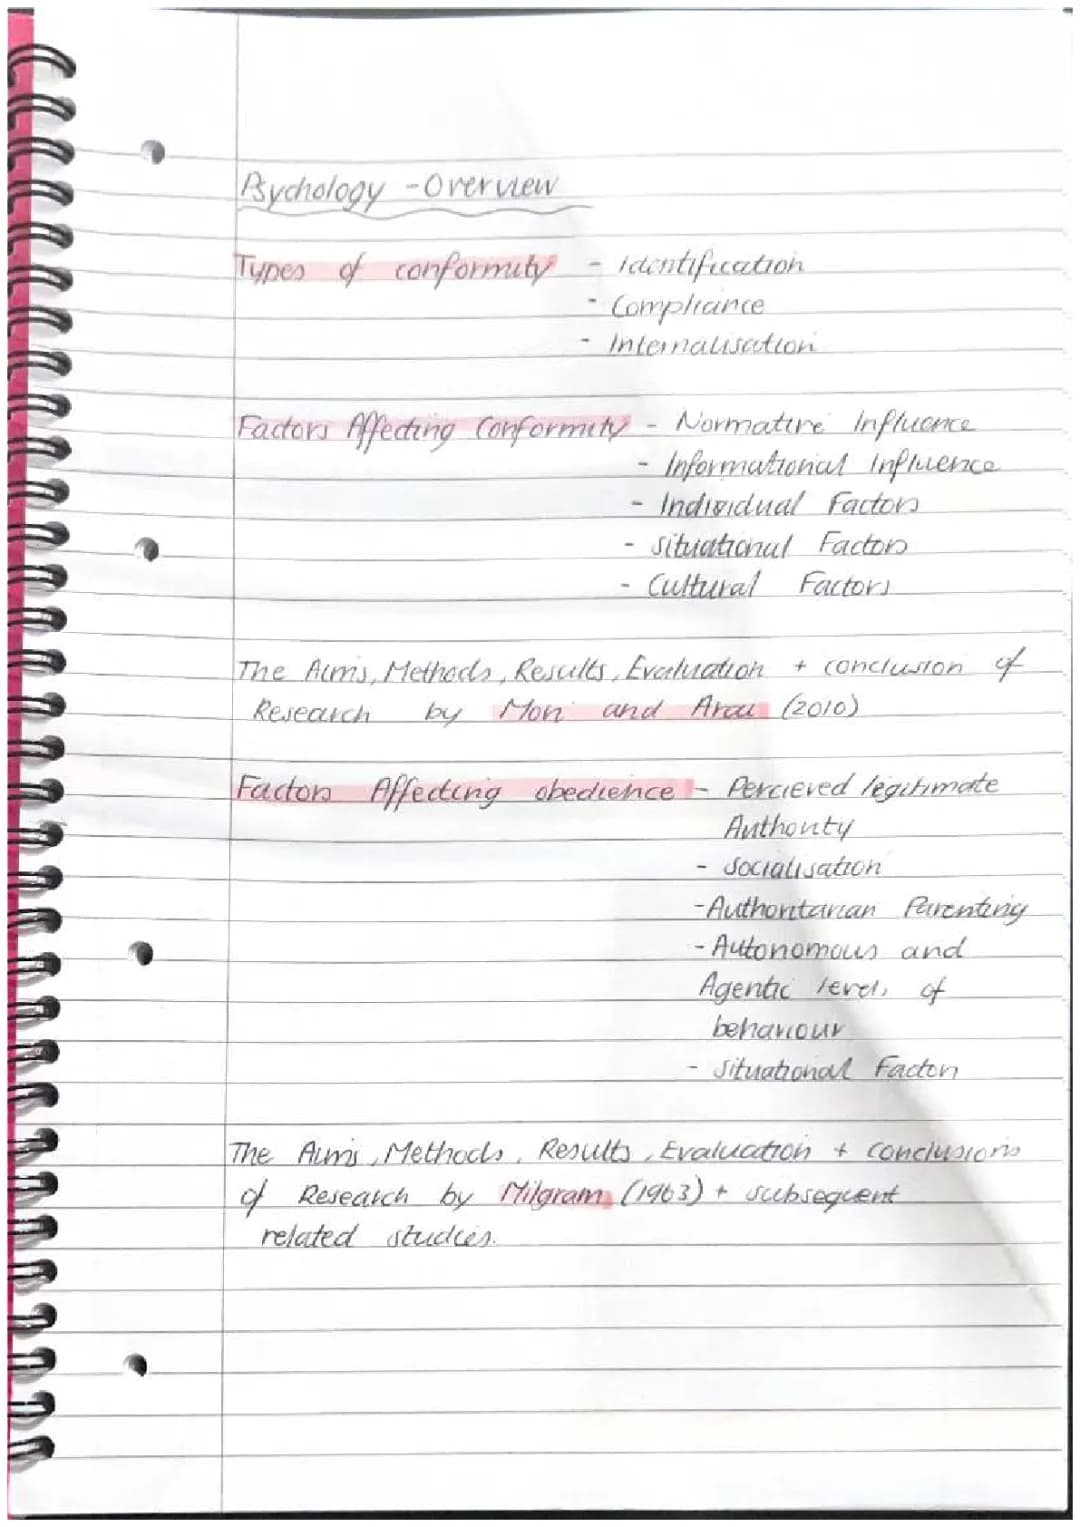 Psychology - Overview
Types of conformity - Identification
- Compliance
- Internalisation
Factors Affecting Conformity - Normative Influence
- Informational Influence
- Individual Factors
- Situational Factors
- Cultural Factors
The Aims, Methods, Results, Evaluation + conclusion of
Research by Mori and Arai (2010)
Factors Affecting obedience - Percieved legitimate
Authority
- Socialisation
- Authoritarian Parenting
- Autonomous and
Agentic levels of
behaviour
- Situational Factors
The Aims, Methods, Results, Evaluation + conclusions
of Research by Milgram (1963) + subsequent
related studies.